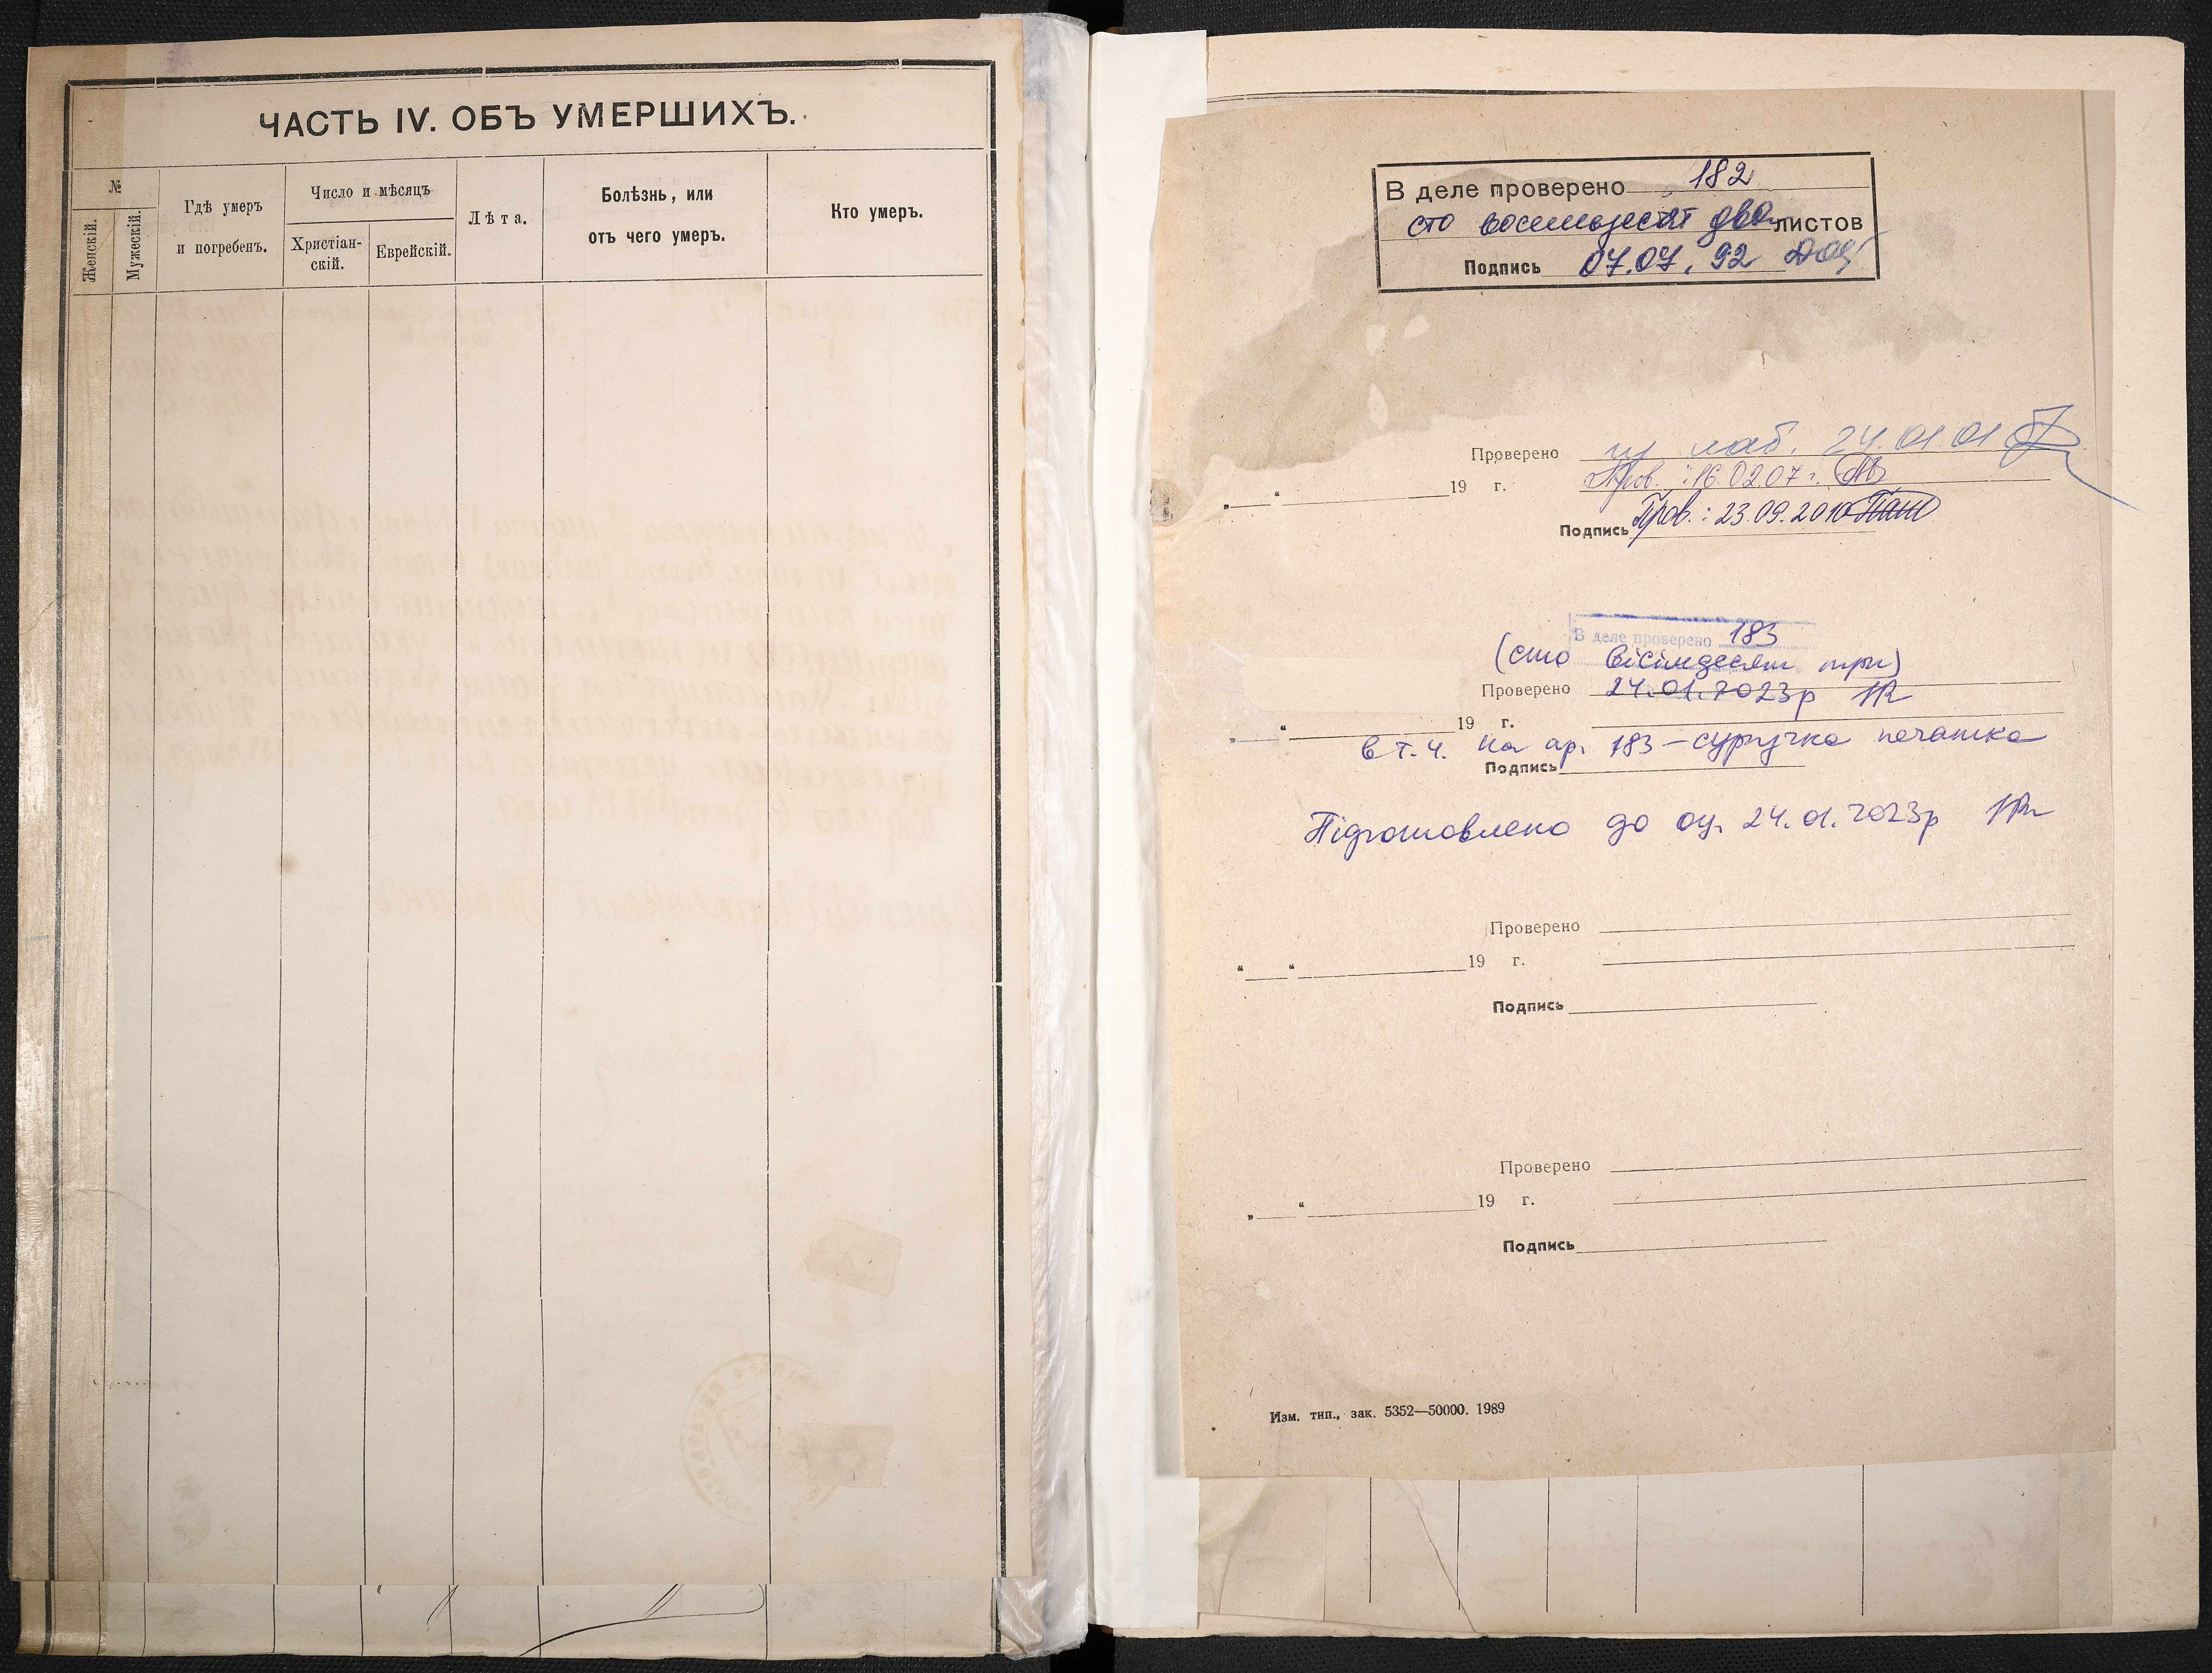 ЧАСТЬ IV. ОБЪ УМЕРШИХЪ.
№
Женскій.
Мужескій.
Гдѣ умеръ
и погребенъ.
Число и мѣсяцъ
Христіан-
скій.
Еврейскій.
Лѣта.
Болѣзнь, или
отъ чего умеръ.
Кто умеръ.
В деле проверено 182
сто восемьдесят два листов
Подпись 07.07.92
Проверено лаб. 24.01.01
Пров.: 16.02.07г.
„ “ 19 г.
Подпись Пров.: 23.09.2010
В деле проверено 183
(сто вісімдесят три)
Проверено 24.01.2023р
„ “ 19 г.
в т.ч. на ар. 183 – сургучна печатка
Подпись
Підготовлено до оц. 24.01.2023р
Проверено
„ “ 19 г.
Подпись
Проверено
„ “ 19 г.
Подпись
Изм. тип., зак. 5352—50000. 1989